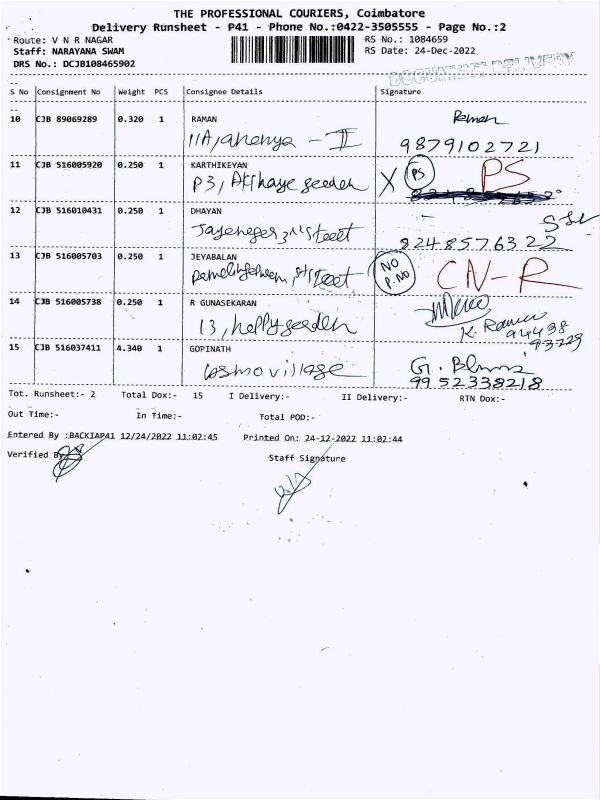 THE PROFESSIONAL COURIERS, Coimbatore
Delivery Runsheet - P41 - Phone No.:0422-3505555 - Page No.:2
Route: V N R NAGAR RS No.: 1084659
Staff: NARAYANA SWAM RS Date: 24-Dec-2022
DRS No.: DCJB108465902
DELIVERY
S No Consignment No Weight PCS Consignee Details Signature
10 CJB 89069289 0.320 1 RAMAN Raman
11A, ahanya - II 9879102721
11 CJB 516005920 0.250 1 KARTHIKEYAN X PS PS
P3, Akshaye geeden
12 CJB 516010431 0.250 1 DHAYAN
Jayeneger 3rd street 8248576322
13 CJB 516005703 0.250 1 JEYABALAN NO P.NO CN-R
street
14 CJB 516005738 0.250 1 R GUNASEKARAN
13, heppy geeden K. Raman 94438 93729
15 CJB 516037411 4.340 1 GOPINATH G.
Cosmo village 9952338218
Tot. Runsheet:- 2 Total Dox:- 15 I Delivery:- II Delivery:- RTN Dox:-
Out Time:- In Time:- Total POD:-
Entered By :BACKIAP41 12/24/2022 11:02:45 Printed On: 24-12-2022 11:02:44
Verified By Staff Signature